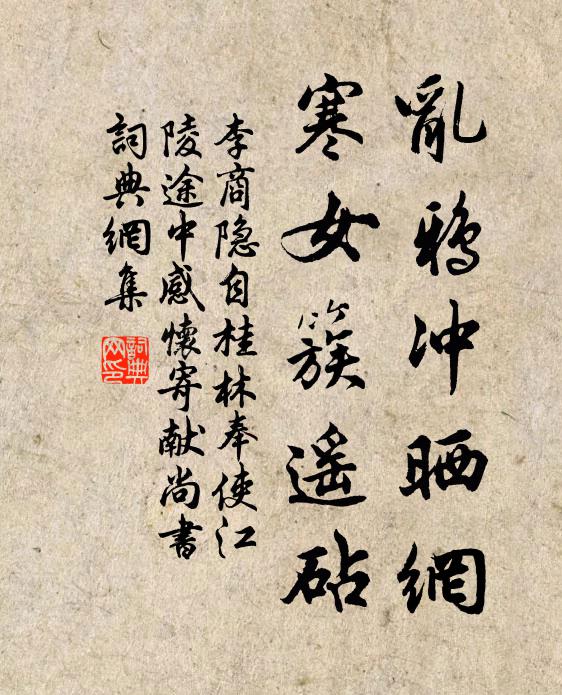 亂鴉冲晒網
寒女簇遥砧
李商隐自桂林奉使江
陵途中感懷寄献尚書
詞典網集
詞典
网印